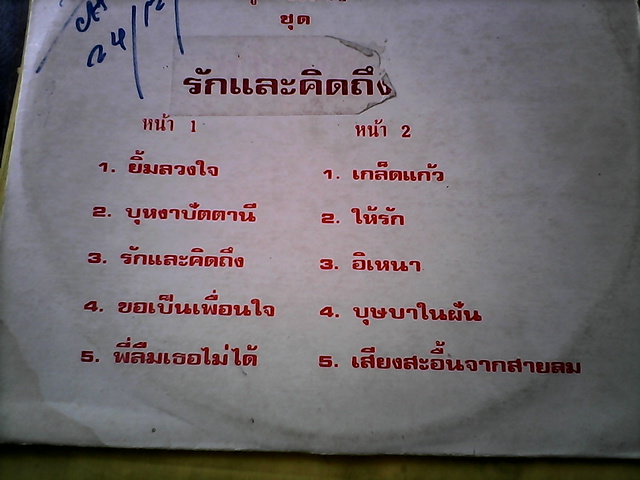 ชุด
24/12
รักและคิดถึง
หน้า 1
1. ยิ้มลวงใจ
2. บุหงาปัตตานี
3. รักและคิดถึง
4. ขอเป็นเพื่อนใจ
5. พี่ลืมเธอไม่ได้
หน้า 2
1. เกล็ดแก้ว
2. ให้รัก
3. อิเหนา
4. บุษบาในฝัน
5. เสียงสะอื้นจากสายลม